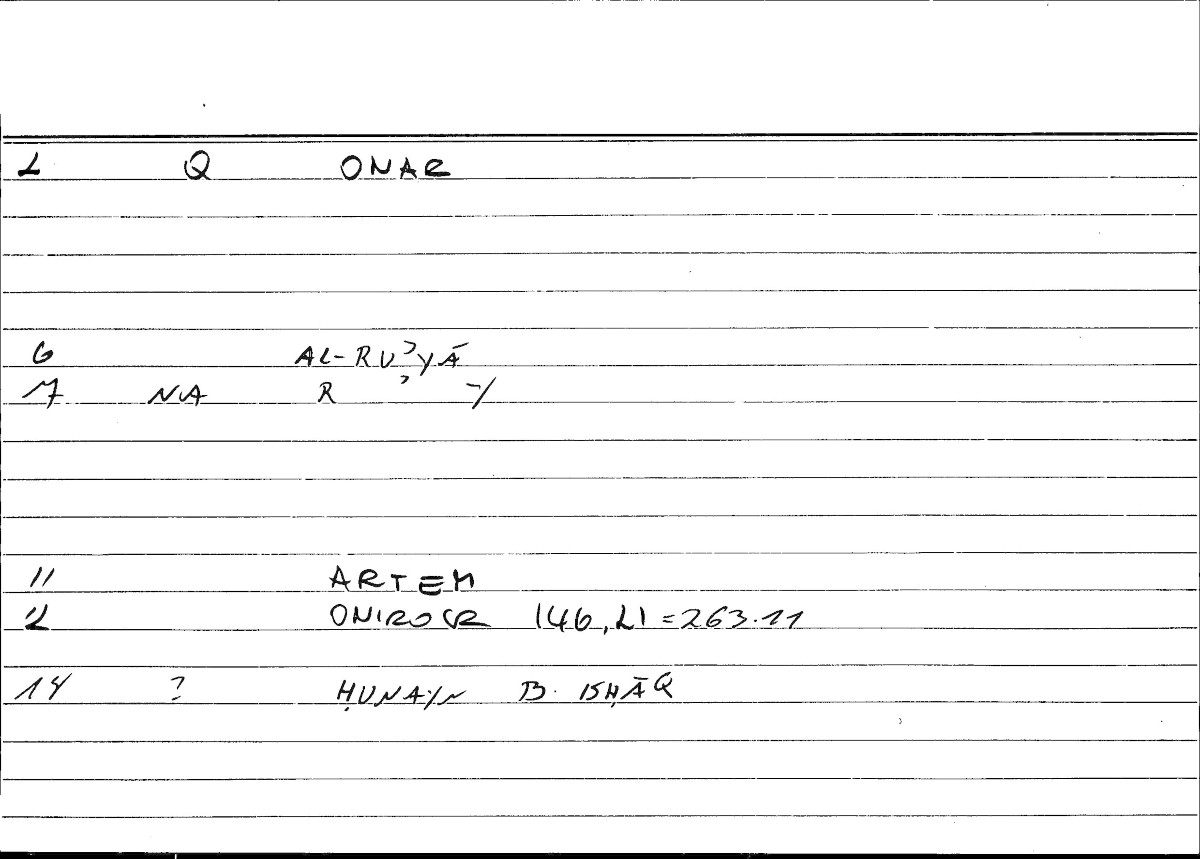 2 Q ONAR
6 AL-RUʾYĀ
7 NA R ʾ -Y
11 ARTEM
12 ONIROCR 146,21 = 263.11
14 ? ḤUNAYN B. ISḤĀQ